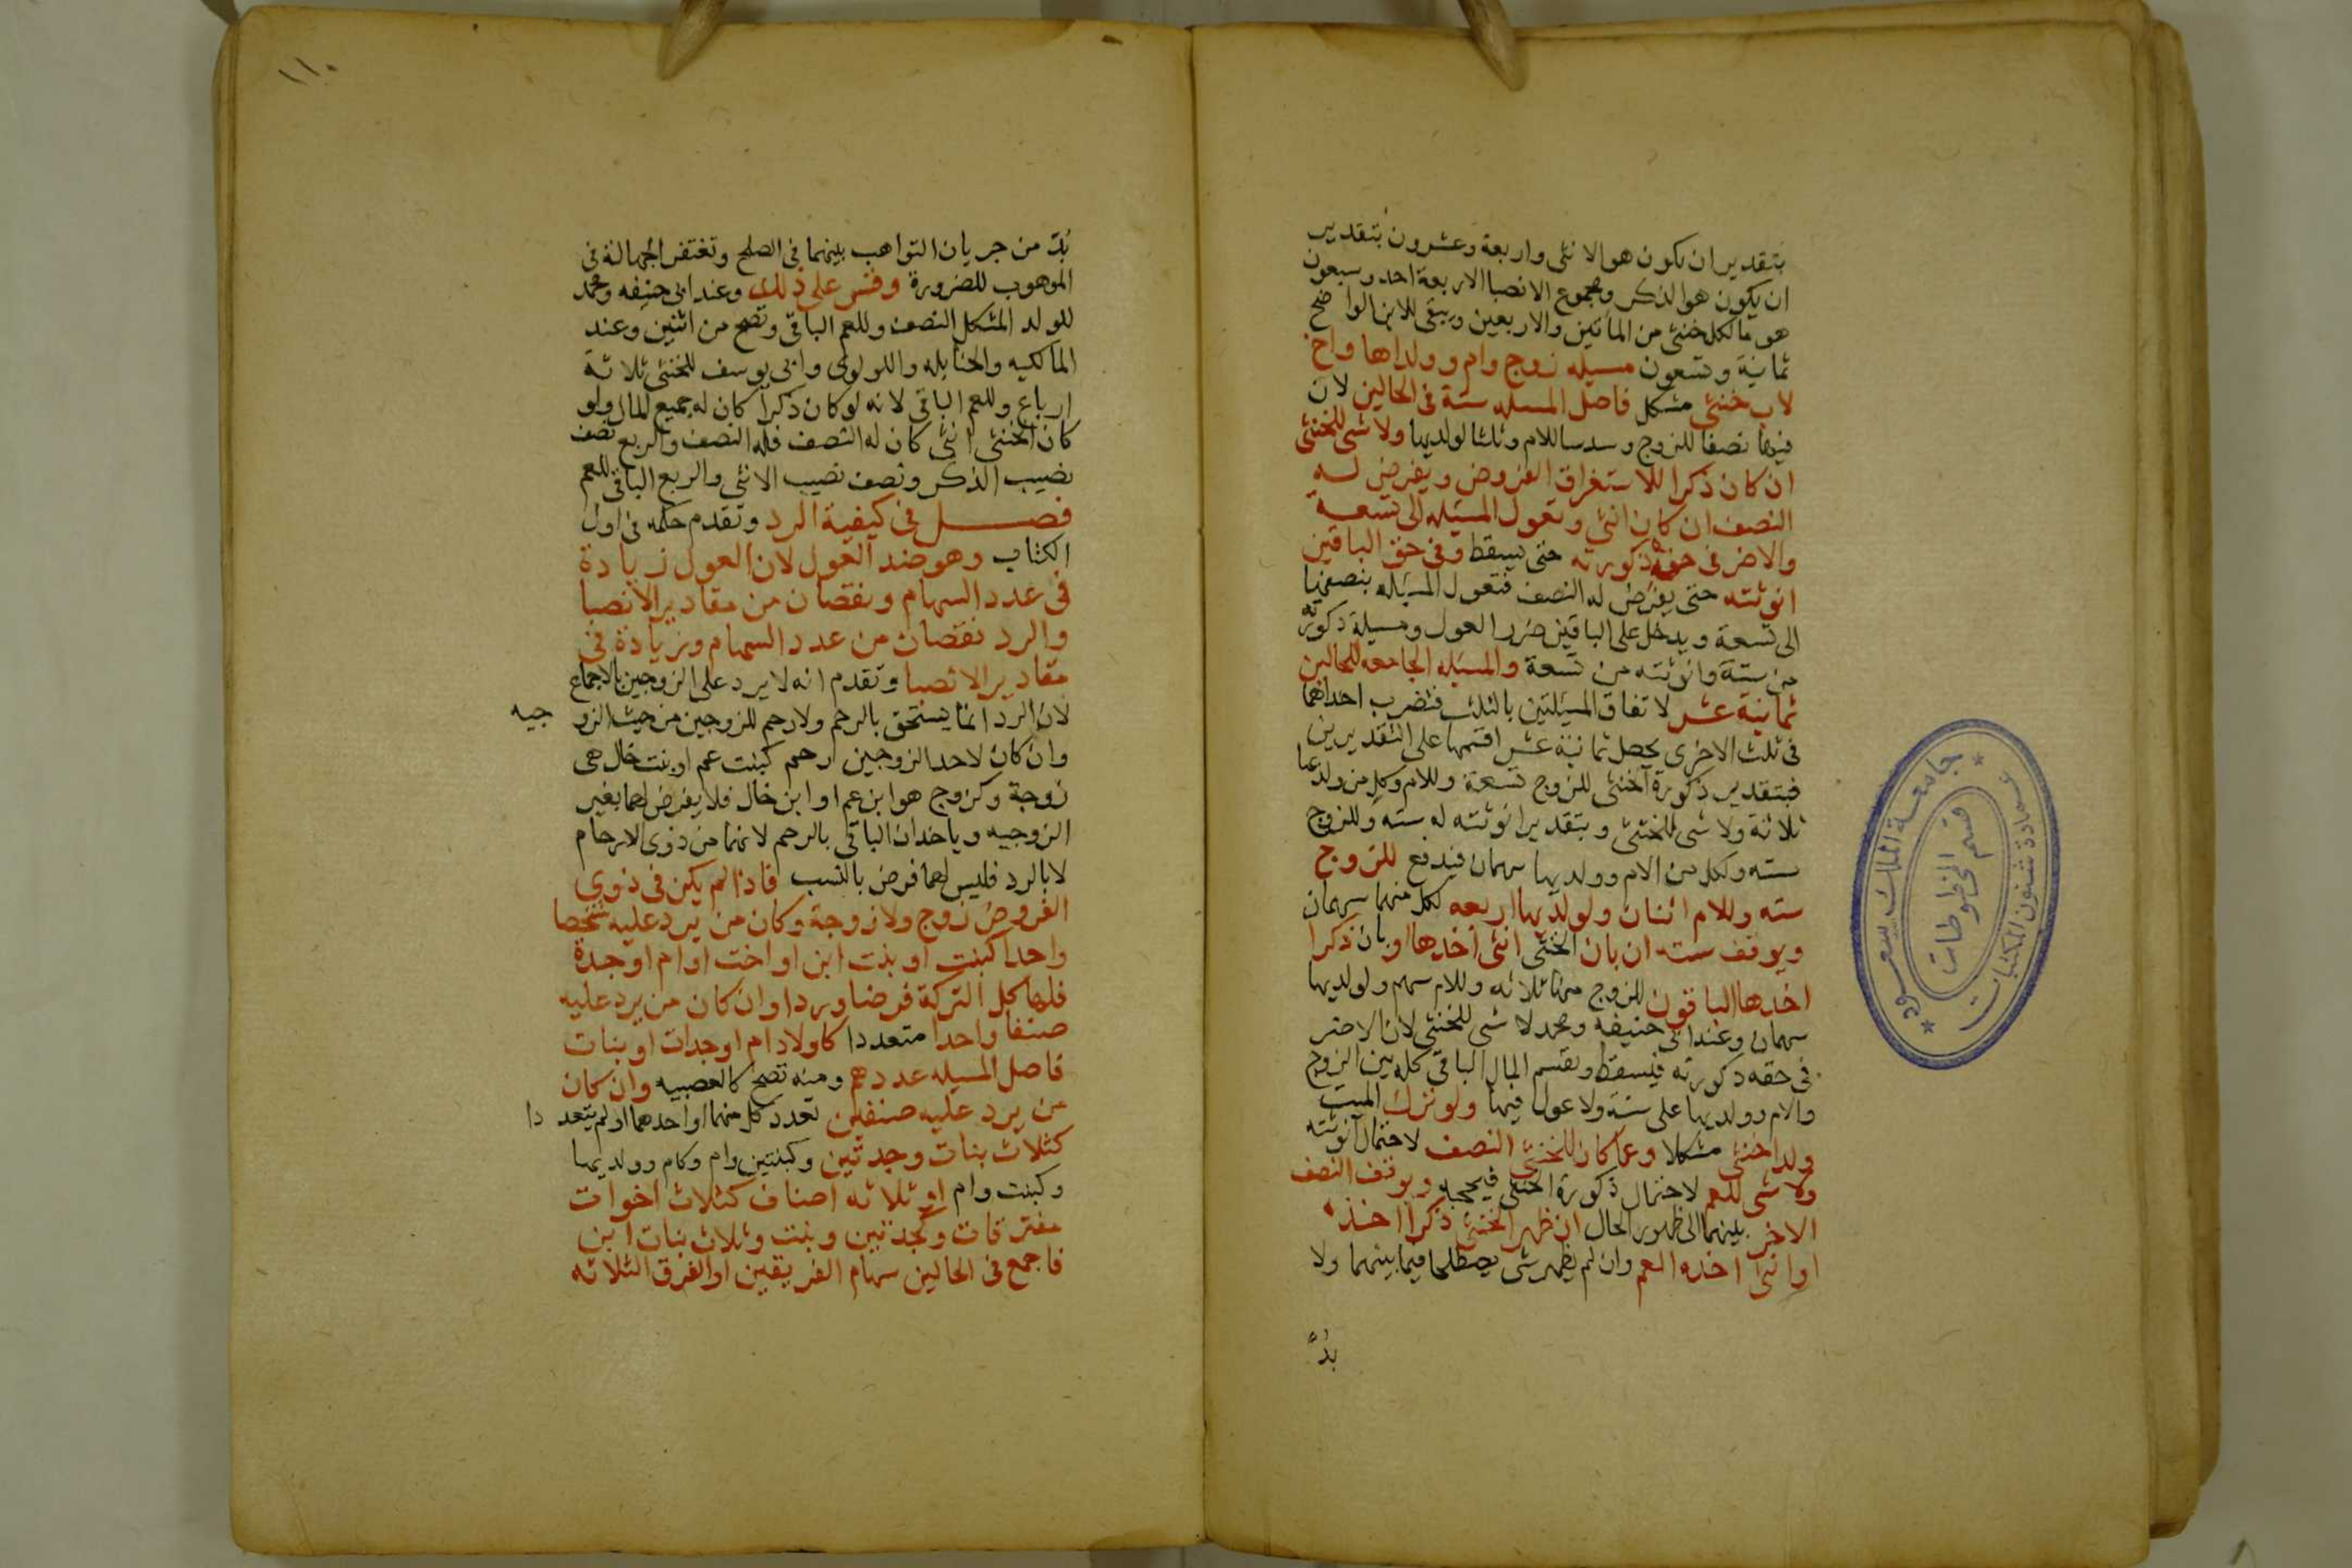 بتقدير ان يكون هو الانثى واربعة وعشرون بتقدير
ان يكون هو الذكر ومجموع الانصبا الاربعة احد وسبعون
هو ما لكل خنثى من المأتين والاربعين ويبقى للابن الواضح
ثمانية وتسعون مسيله زوج وام وولداها واخ
لاب خنثى مشكل فاصل المسله ستة فى الحالين لان
فيها نصفا للزوج وسدسا للام وثلثا لولديها ولا شى للخنثى
ان كان ذكرا للاستغراق الفروض ويفرض له
النصف ان كان انثى وتعول المسئله الى تسعة
والاضر فى حقه ذكورته حتى يسقط وفى حق الباقين
انوثته حتى يفرض له النصف فتعول المسئله بنصفها
الى تسعة ويدخل على الباقين ضرر العول ومسيلة ذكورته
من ستة وانوثته من تسعة والمسئله الجامعه للحالين
ثمانية عشر لاتفاق المسئلتين بالثلث فتضرب احداهما
فى ثلث الاخرى يحصل ثمانية عشر اقسمها على التقديرين
فبتقدير ذكورة الخنثى للزوج تسعة وللام وكل من ولديها
ثلاثة ولا شى للخنثى وبتقدير انوثته له سته وللزوج
سته ولكل من الام وولديها سهمان فيدفع للزوج
سته وللام اثنان ولولديها اربعه لكل منهما سهمان
ويوقف سته ان بان الخنثى انثى اخذها او بان ذكرا
اخذها الباقون للزوج منها ثلاثه وللام سهم ولولديها
سهمان وعند ابى حنيفه ومحمد لا شى للخنثى لان الاضر
فى حقه ذكورته فيسقط ويقسم المال الباقى كله بين الزوج
والام وولديها على ستة ولا عول فيها ولو ترك الميت
ولدا خنثى مشكلا وعما كان للخنثى النصف لاحتمال انوثته
ولا شى للعم لاحتمال ذكورة الخنثى فيحجبه ويوقف النصف
الاخر بينهما الى ظهور الحال ان ظهر الخنثى ذكرا اخذه
او انثى اخذه العم وان لم يظهر شى يصطلحا فيما بينهما ولا
بدّ
١١٠
بدّ من جريان التواهب بينهما فى الصلح وتغتفر الجهالة فى
الموهوب للضرورة وقس على ذلك وعند ابى حنيفه ومحمد
للولد المشكل النصف وللعم الباقى وتصح من اثنين وعند
المالكيه والحنابله واللولوى وابى يوسف للخنثى ثلاثة
ارباع وللعم الباقى لانه لو كان ذكرا كان له جميع المال ولو
كان الخنثى انثى كان له النصف فله النصف والربع نصف
نصيب الذكر ونصف نصيب الانثى والربع الباقى للعم
فصل فى كيفية الرد وتقدم حكمه فى اول
الكتاب وهو ضد العول لان العول زيادة
فى عدد السهام ونقصان من مقادير الانصبا
والرد نقصان من عدد السهام وزيادة فى
مقادير الانصبا وتقدم انه لا يرد على الزوجين بالاجماع
لان الرد انما يستحق بالرحم ولا رحم للزوجين من حيث الزوجيه
وان كان لاحد الزوجين رحم كبنت عم او بنت خال هى
زوجة وكزوج هو ابن عم او ابن خال فلا يفرض لهما بغير
الزوجيه وياخذان الباقى بالرحم لانهما من ذوى الارحام
لا بالرد فليس لهما فرض بالنسب فاذا لم يكن فى ذوى
الفروض زوج ولا زوجة وكان من يرد عليه شخصا
واحدا كبنت او بنت ابن او اخت او ام او جدة
فلها كل التركة فرضا وردا وان كان من يرد عليه
صنفا واحدا متعددا كاولاد ام او جدات او بنات
فاصل المسيله عددهم ومنه تصح كالعصبيه وان كان
من يرد عليه صنفين تعدد كل منهما او احدهما او لم يتعددا
كثلاث بنات وجدتين وكبنتين وام وكام وولديها
وكبنت وام او ثلاثه اصناف كثلاث اخوات
مفترقات وكجدتين وبنت وثلاث بنات ابن
فاجمع فى الحالين سهام الفريقين او الفرق الثلاثه
جامعة الملك سعود
عمادة شئون المكتبات
قسم المخطوطات